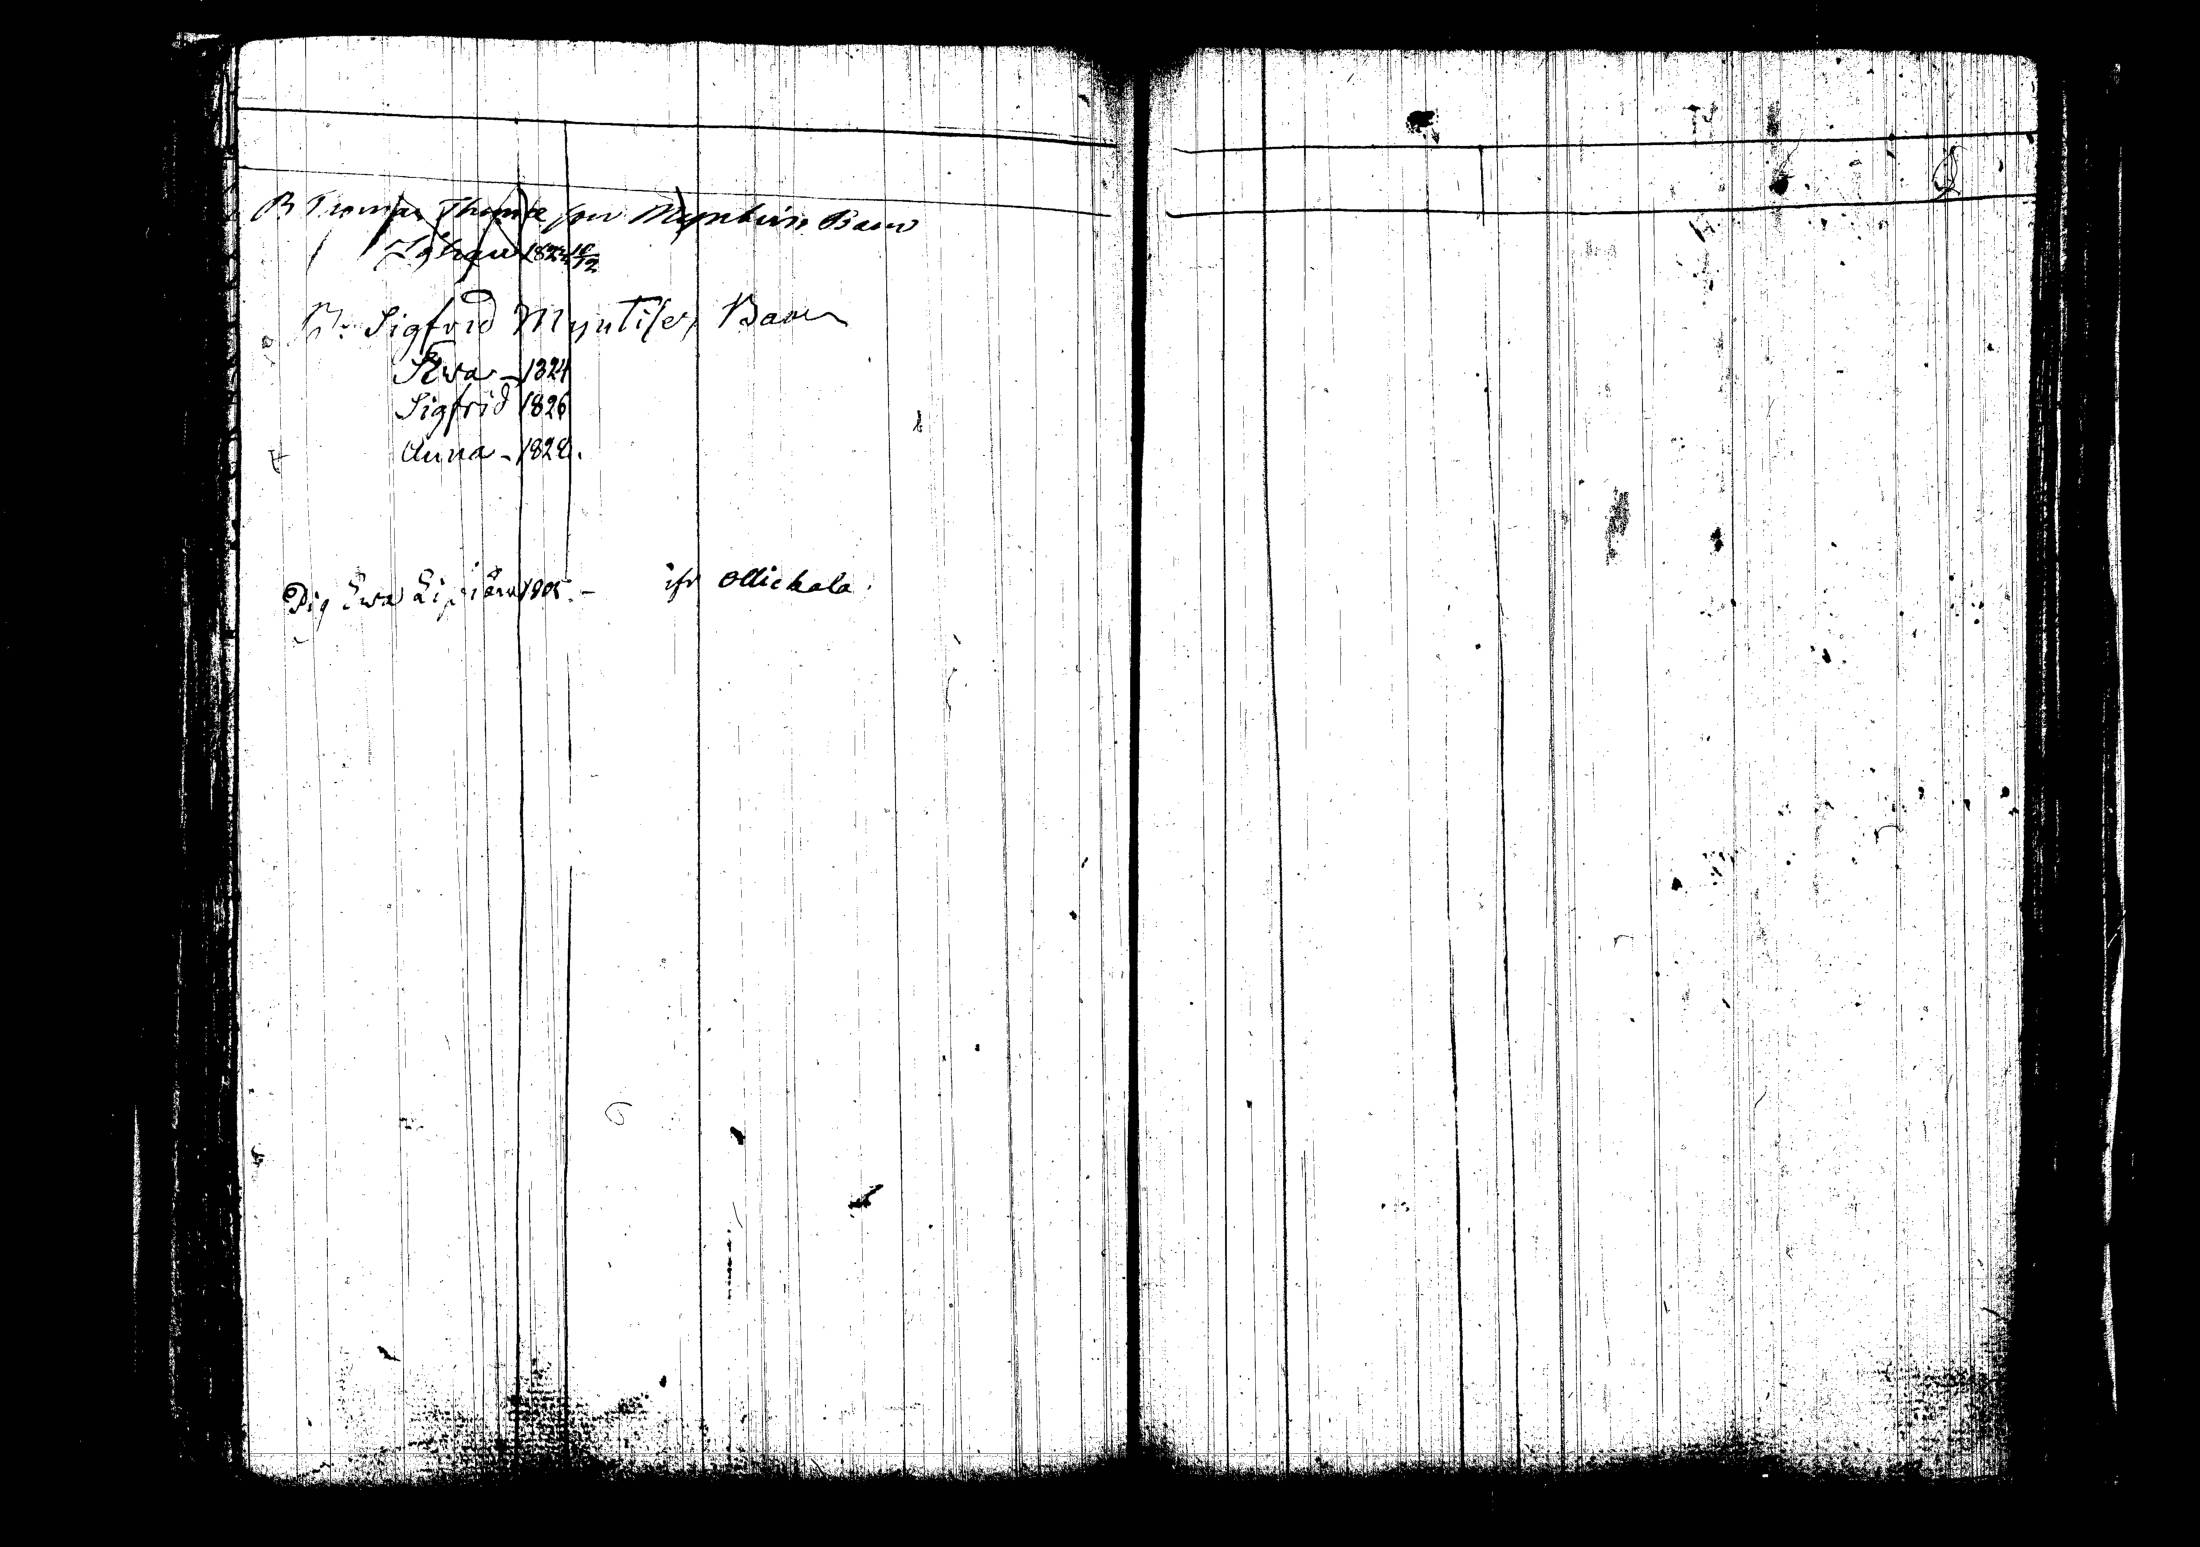 B Thomas Thomæ son Myntinis Barn
Johan 1824 16/12
Br. Sigfrid Myntises Barn
Ewa - 1824
Sigfrid 1826
Anna - 1828.
Pig Ewa 1805. - ifr Ollickala.